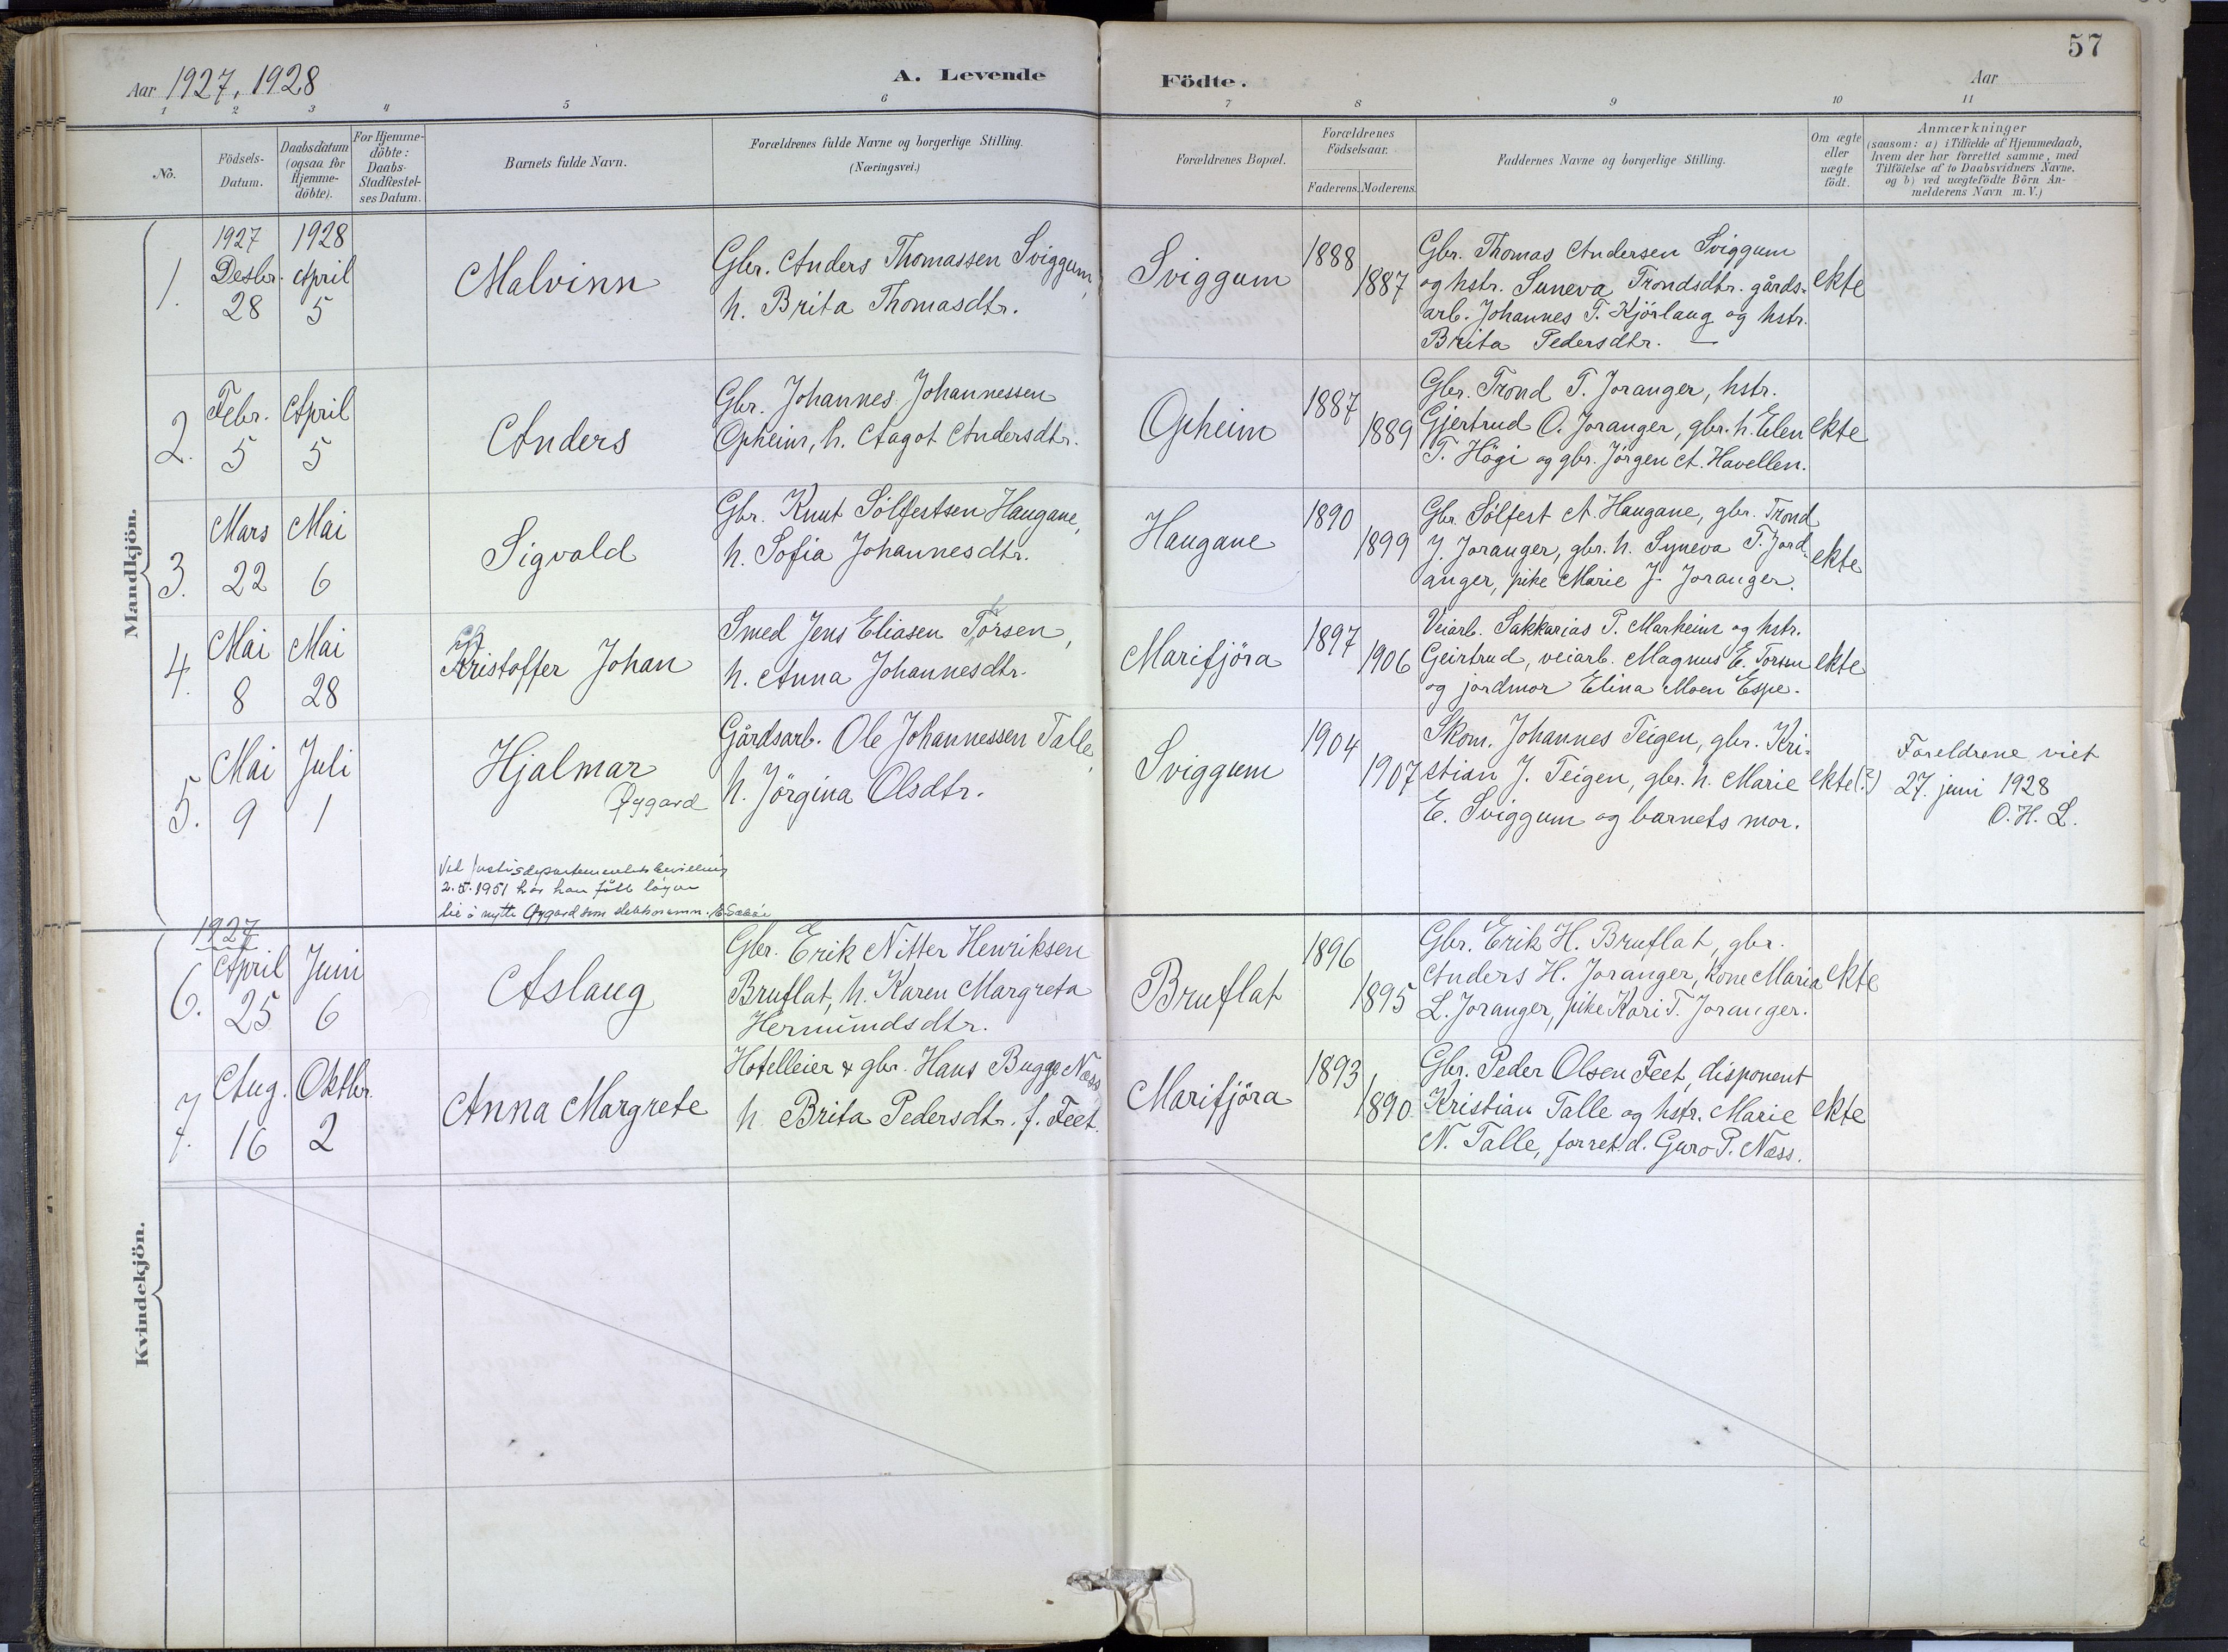 57
Aar 1927, 1928
A. Levende Födte.
Aar
1 2 3 4 5 6 7 8 9 10 11
No.
Födsels-
Datum.
Daabsdatum
(ogsaa for
Hjemme-
döbte).
For Hjemme-
döbte:
Daabs-
Stadfæstel-
ses Datum.
Barnets fulde Navn.
Forældrenes fulde Navne og borgerlige Stilling.
(Næringsvei.)
Forældrenes Bopæl.
Forældrenes
Födselsaar.
Faderens. Moderens.
Faddernes Navne og borgerlige Stilling.
Om ægte
eller
uægte
födt.
Anmærkninger
(saasom: a) i Tilfælde af Hjemmedaab,
hvem der har forrettet samme, med
Tilföielse af to Daabsvidners Navne.
og b) ved uægtefödte Börn An-
melderens Navn m. V.)
Mandkjön.
1.
1927
Desbr.
28
1928
April
5
Malvinn
Gbr. Anders Thomassen Sviggum,
h. Brita Thomasdtr.
Sviggum
1888
1887
Gbr. Thomas Andersen Sviggum
og hstr. Suneva Trondsdtr. gårds-
arb. Johannes T. Kjörlaug og hstr.
Brita Pedersdtr. —
ekte
2.
Febr.
5
April
5
Anders
Gbr. Johannes Johannessen
Opheim, h. Aagot Andersdtr.
Opheim
1887
1889
Gbr. Trond T. Joranger, hstr.
Gjertrud O. Joranger, gbr. h. Elen
T. Högi og gbr. Jörgen A. Havellen.
ekte
3.
Mars
22
Mai
6
Sigvald
Gbr. Knut Sölfestsen Haugane,
h. Sofia Johannesdtr.
Haugane
1890
1899
Gbr. Sölfest A. Haugane, gbr. Trond
J. Joranger, gbr. h. Syneva T. Jord-
anger, pike Marie J. Joranger.
ekte
4.
Mai
8
Mai
28
Ch
Kristoffer Johan
Smed Jens Eliasen Thorsen,
h. Anna Johannesdtr.
Marifjöra
1897
1906
Veiarb. Sakkarias P. Marheim og hstr.
Geirtrud, veiarb. Magnus E. Torsen
og jordmor Elina Moen Espe.
ekte
5.
Mai
9
Juli
1
Hjalmar
Øygard
Gårdsarb. Ole Johannessen Talle,
h. Jörgina Olsdtr.
Sviggum
1904
1907
Skom. Johannes Teigen, gbr. Kri-
stian J. Teigen, gbr. h. Marie
E. Sviggum og barnets mor.
ekte(?)
Foreldrene viet
27. juni 1928
O. H. L.
Ved Justisdepartementets bevilling
2.5.1951 har han fått løyve
til å nytte Øygard som slektsnamn.
Kvindekjön.
6.
1927
April
25
Juni
6
Aslaug
Gbr. Erik Nitter Henriksen
Bruflat, h. Karen Margreta
Hermundsdtr.
Bruflat
1896
1895
Gbr. Erik H. Bruflat, gbr.
Anders H. Joranger, kone Maria
L. Joranger, pike Kari T. Joranger.
ekte
7.
Aug.
16
Oktbr.
2
Anna Margrete
Hotelleier & gbr. Hans Bugge Næss
h. Brita Pedersdtr. f. Feet.
Marifjöra
1893
1890
Gbr. Peder Olsen Feet, disponent
Kristian Talle og hstr. Marie
N. Talle, forret.d. Guro P. Næss.
ekte